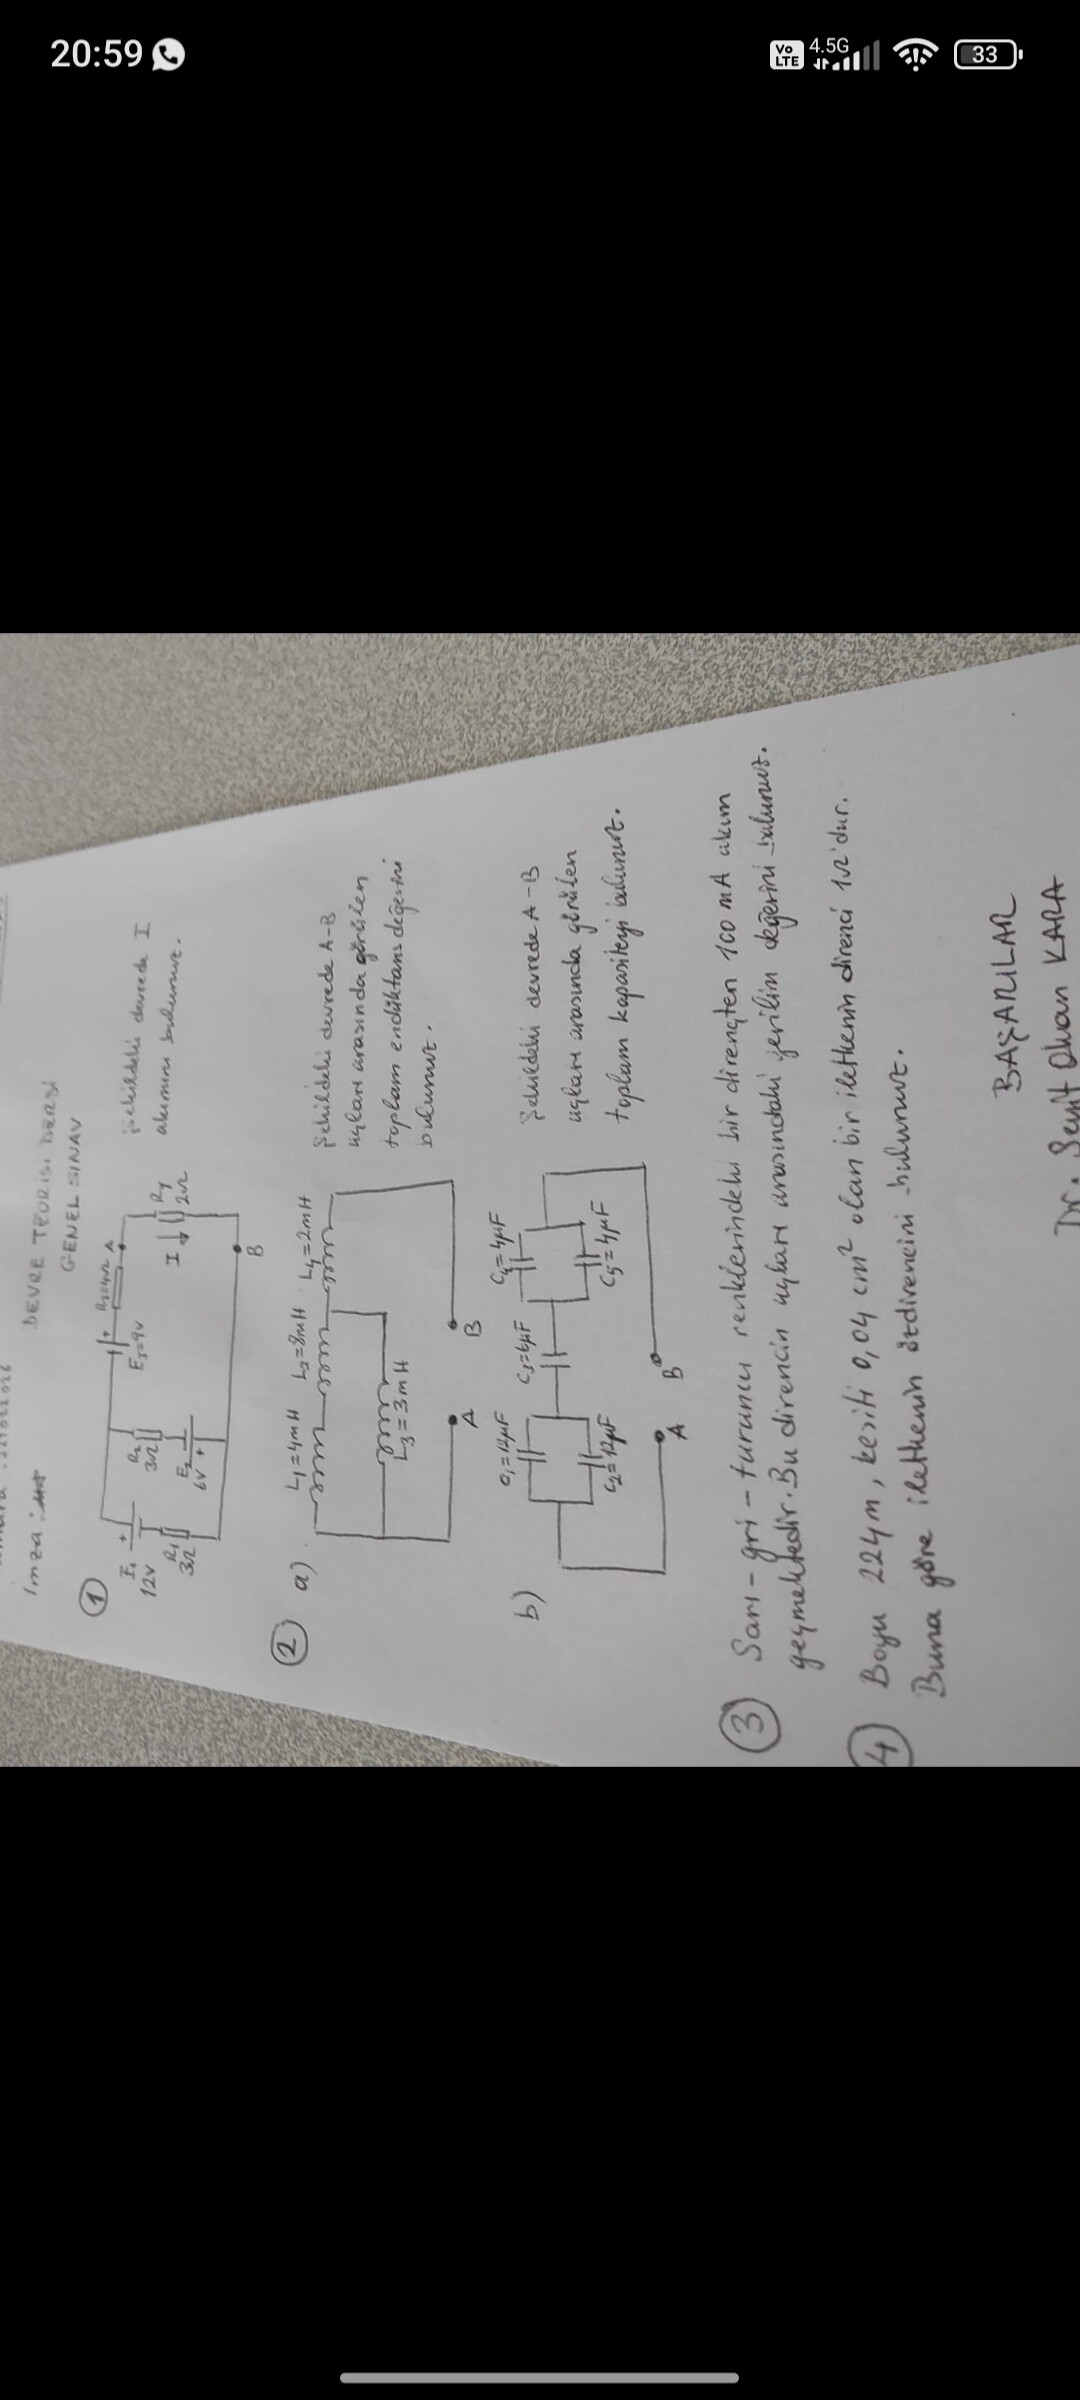 20:59
Vo LTE 4.5G 33
İmza:
DEVRE TEORİSİ DERSİ
GENEL SINAV
1
E₁ 12V
R₁ 3Ω
R₂ 3Ω
E₂ 6V
E₃=9V
R₃=4Ω
A
I
R₄ 2Ω
B
Şekildeki devrede I
akımını bulunuz.
2 a)
L₁=4mH L₂=8mH L₄=2mH
L₃=3mH
A B
Şekildeki devrede A-B
uçları arasında görülen
toplam endüktans değerini
bulunuz.
b)
C₁=12µF C₃=4µF C₄=4µF
C₂=12µF C₅=4µF
A B
Şekildeki devrede A-B
uçları arasında görülen
toplam kapasiteyi bulunuz.
3 Sarı-gri-turuncu renklerindeki bir dirençten 100 mA akım
geçmektedir. Bu direncin uçları arasındaki gerilim değerini bulunuz.
4 Boyu 224m, kesiti 0,04 cm² olan bir iletkenin direnci 1Ω'dur.
Buna göre iletkenin özdirencini bulunuz.
BAŞARILAR
Dr. KARA